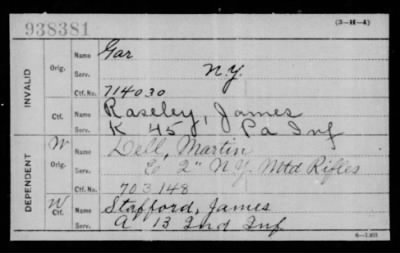 938381
(3-H-4)
INVALID
Orig. Name Gar
Serv. N.Y.
Ctf. No. 714030
Ctf. Name Raseley, James
Serv. K 45, Pa Inf
DEPENDENT
W Orig. Name Dell, Martin
Serv. E 2" N.Y. Mtd Rifles
Ctf. No. 703148
W Ctf. Name Stafford, James
Serv. A 13 Ind Inf